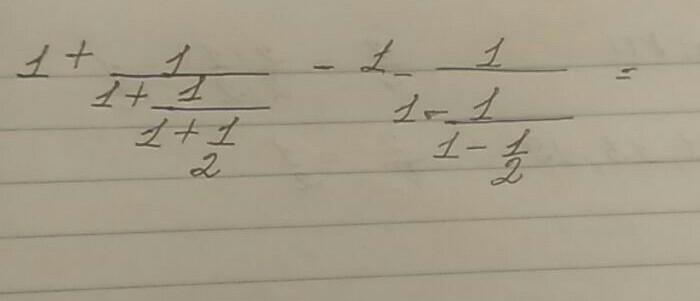 1 + 1 - 1 - 1 =
1 + 1 1 - 1
1 + 1 1 - 1
2 2